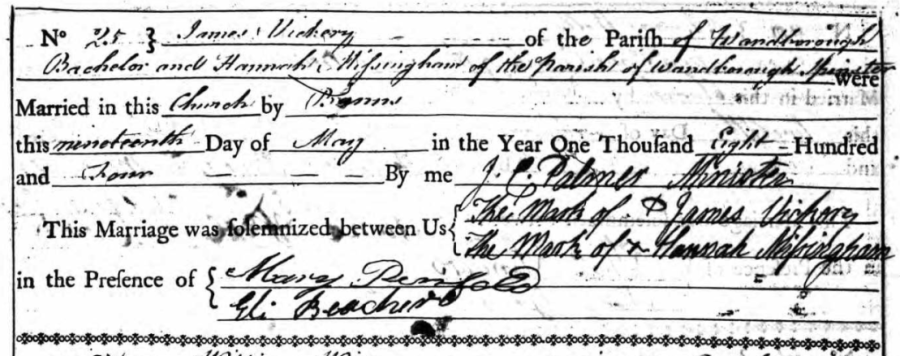 No 25 } James Vickery of the Parish of Wandborough
Bachelor and Hannah Missingham of the Parish of Wandborough Spinster were
Married in this Church by Banns
this nineteenth Day of May in the Year One Thousand Eight Hundred
and Four By me J. C. Palmer Minister
This Marriage was solemnized between Us { The Mark of x James Vickery
The Mark of x Hannah Missingham
in the Presence of { Mary Penfold
Eli Beacher